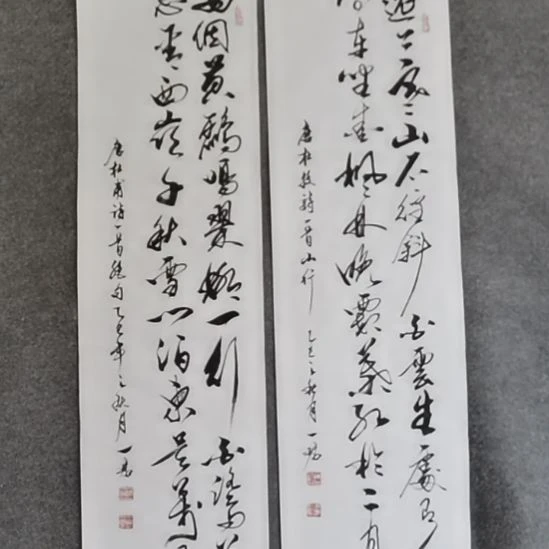 遠上寒山石徑斜白雲生處有
停車坐爱楓林晚霜葉红於二月
唐杜牧詩一首山行乙巳之秋月一
两個黄鸝鳴翠柳一行白鷺上
窗含西嶺千秋雪门泊東吴萬里
唐杜甫詩一首绝句乙巳年之秋月一